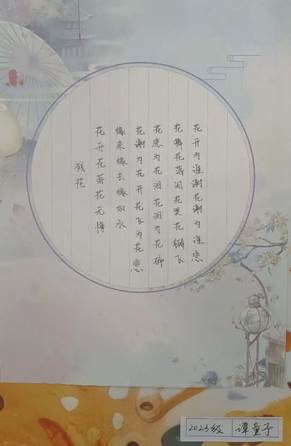 花开为谁谢花谢为谁悲
花舞花落泪花哭花瓣飞
花悲为花泪花泪为花碎
花谢为花开花飞为花悲
缘来缘去缘如水
花开花落花无悔
残花
2023级
谭童予